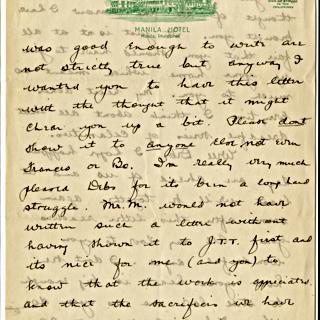 MANILA HOTEL
was good enough to write are
not strictly true but anyway I
wanted you to have this letter
with the thought that it might
cheer you up a bit. Please don't
show it to anyone else not even
Frances or Bo. I'm really very much
pleased Debs for its been a long hard
struggle. Mr. M. would not have
written such a letter without
having shown it to J.T.T. first and
its nice for me (and you) to
know that the work is appreciated
and that the sacrifices we have